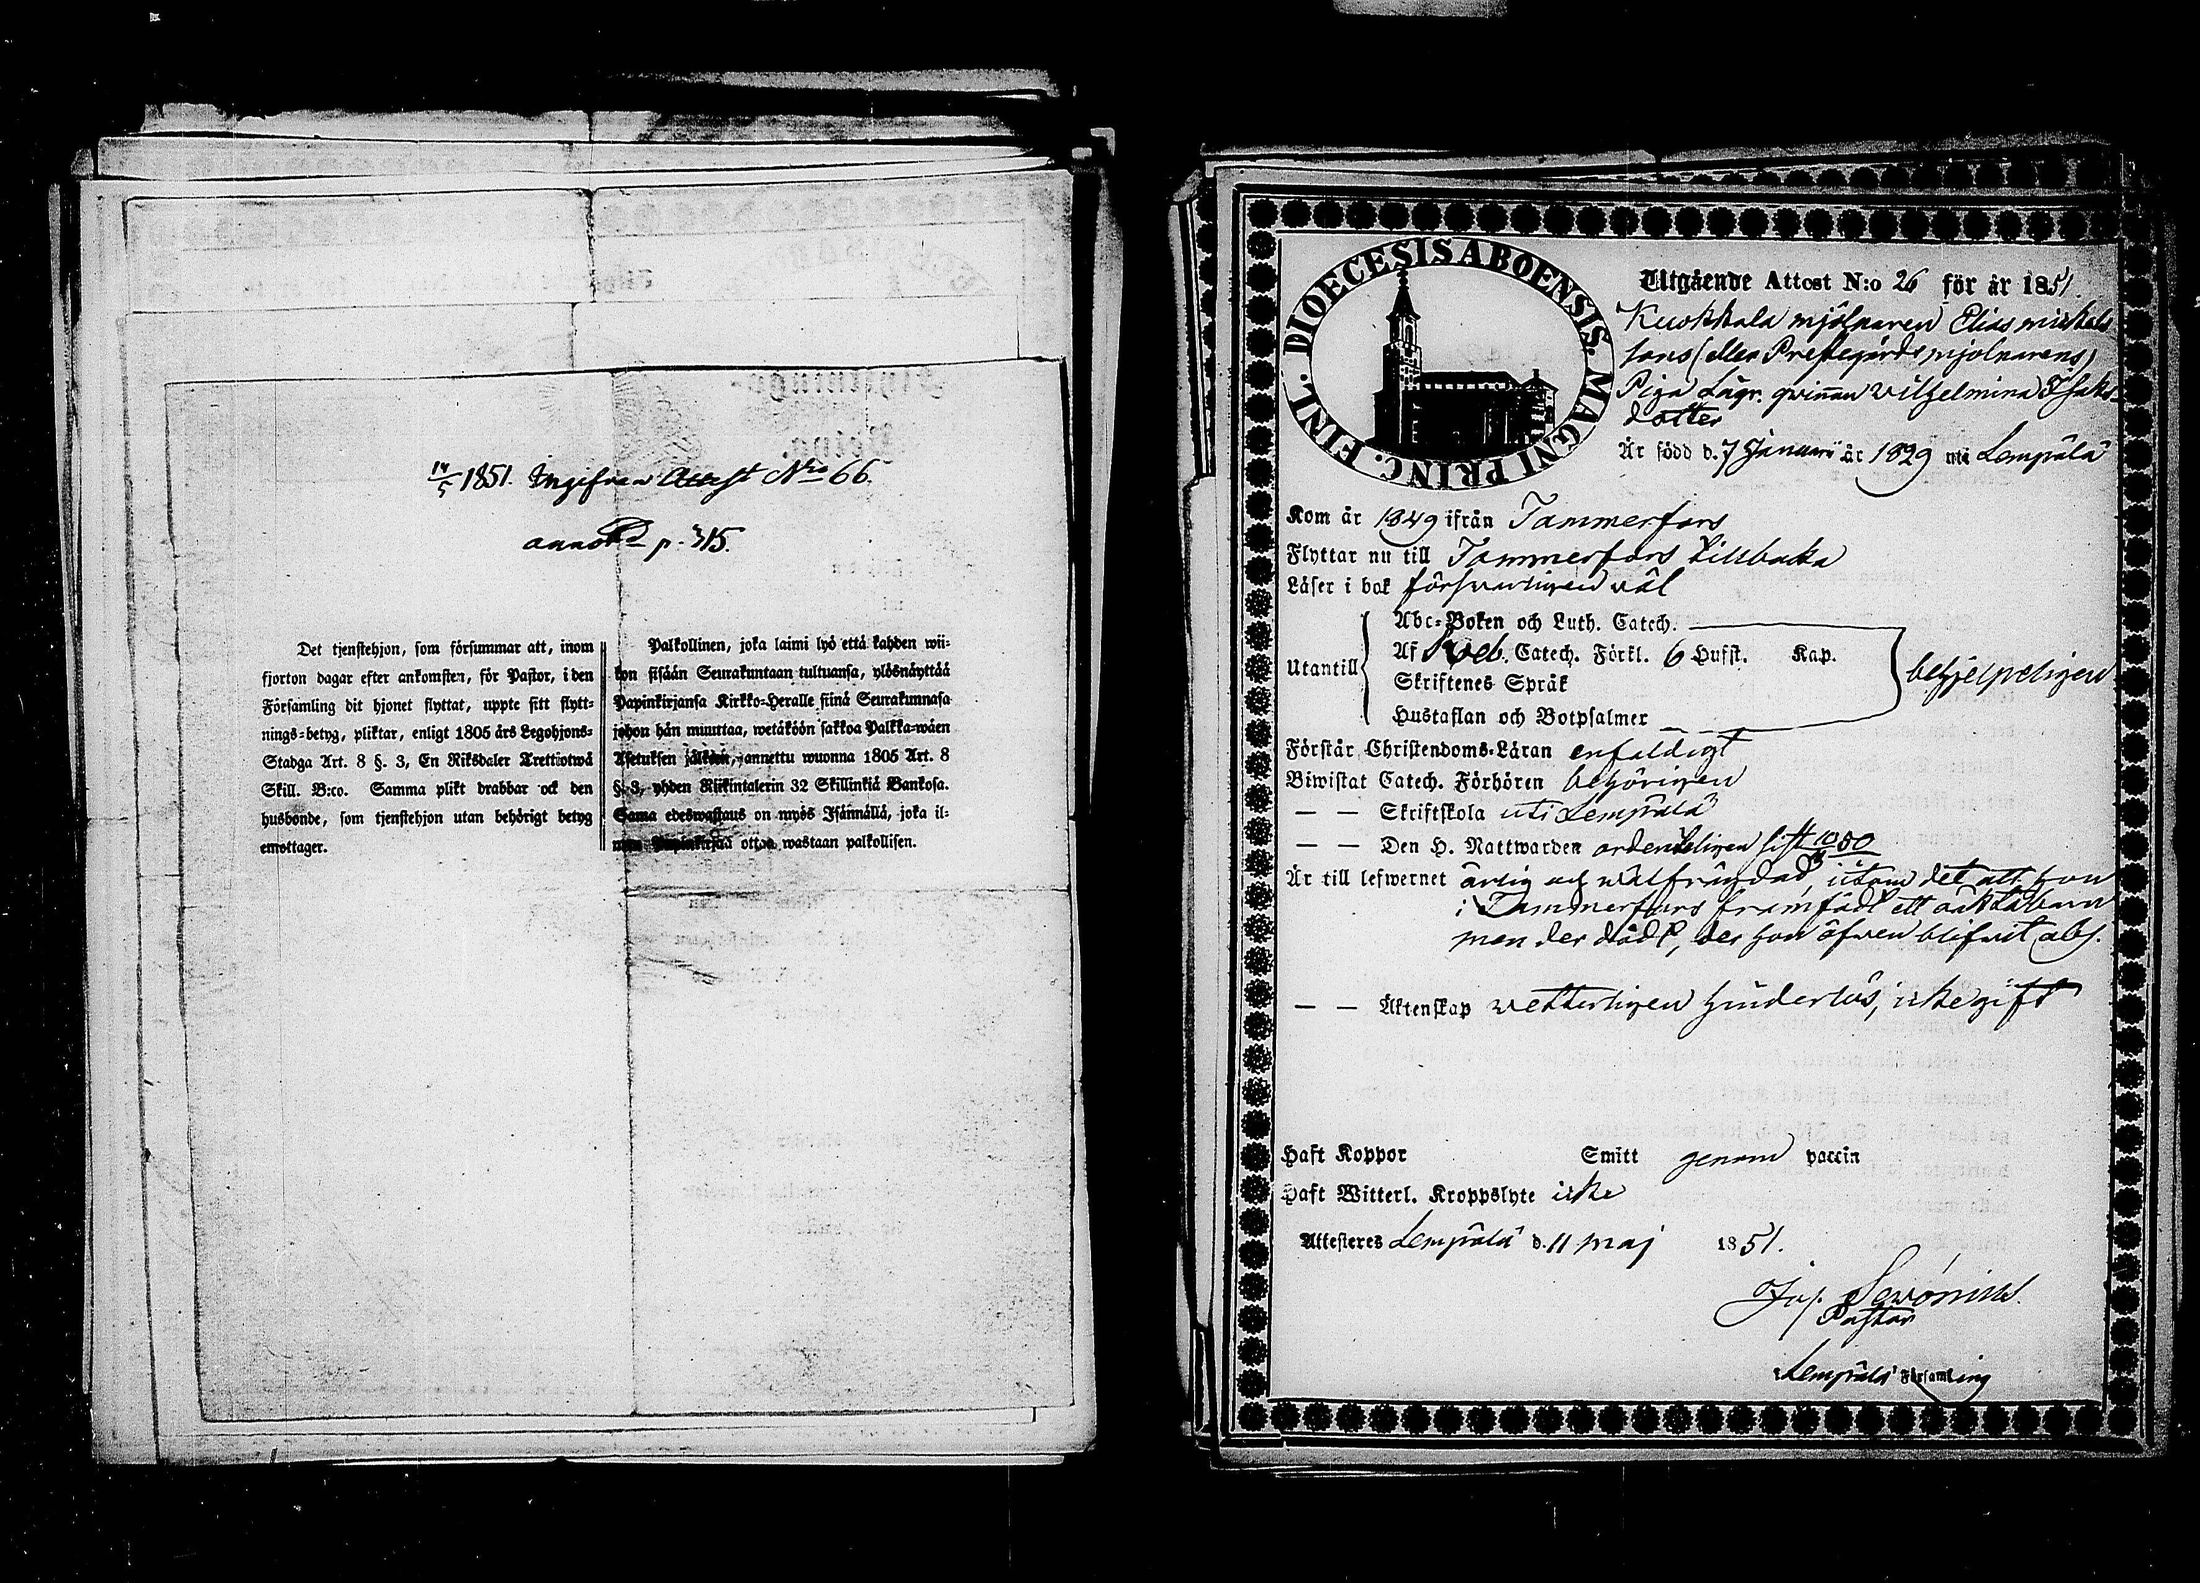 14/5 1851. Ingifven Attest Nro 66.
annot p. 315.
Det tjenstehjon, som försummar att, inom
fjorton dagar efter ankomsten, för Pastor, i den
Församling dit hjonet flyttat, uppte sitt flytt-
nings-betyg, pliktar, enligt 1805 års Legohjons-
Stadga Art. 8 §. 3, En Riksdaler Trettiotwå
Skill. B:co. Samma plikt drabbar ock den
husbonde, som tjenstehjon utan behörigt betyg
emottager.
Palkollinen, joka laimi lyö että kahden wii-
kon sisään Seurakuntaan tultuansa, ylösnäyttää
Papinkirjansa Kirkko-Heralle siinä Seurakunnasa
johon hän muuttaa, wetäköön sakkoa Palkka-wäen
Asetuksen jälkeen, annettu wuonna 1805 Art. 8
§. 3, yhden Riikintalerin 32 Skillinkiä Bankosa.
Sama edeswastaus on myös Isännällä, joka il-
man Papinkirjaa ottaa wastaan palkollisen.
DIOECESIS ABOENSIS. MAGNI PRINC. FINL.
Utgående Attest N:o 26 för år 1851.
Kuokkala mjölnaren Elias mickels
sons (eller Prestegårds mjolnarens)
Piga Lägr. qwinnan Wilhelmina Isaks-
dotter
Är född d. 7 Januari år 1829 uti Lempälä
Kom år 1849 ifrån Tammerfors
Flyttar nu till Tammerfors tillbaka
Läser i bok försvarligen väl
Utantill
Abc-Boken och Luth. Catech.
Af Förkl. 6 Hufst. Kap.
Skriftenes Språk
Hustaflan och Botpsalmer
behjelpeligen
Förstår Christendoms-Läran enfaldigt
Biwistat Catech. Förhören behörigen
— — Skriftskola uti Lempälä
— — Den H. Nattwarden ordenteligen sist 1850
Är till lefwernet ärlig och wälfrägdad, utom det att hon
i Tammerfors framfödt ett oäkta barn
men der dödt, der hon äfwen blifwit abs.
— — Äktenskap wetterligen hinderlös, icke gift
Haft Koppor Smitt genom vaccin
Haft Witterl. Kroppslyte icke
Attesteres Lempälä d. 11 maj 1851.
Pastor
Lempälä Församling